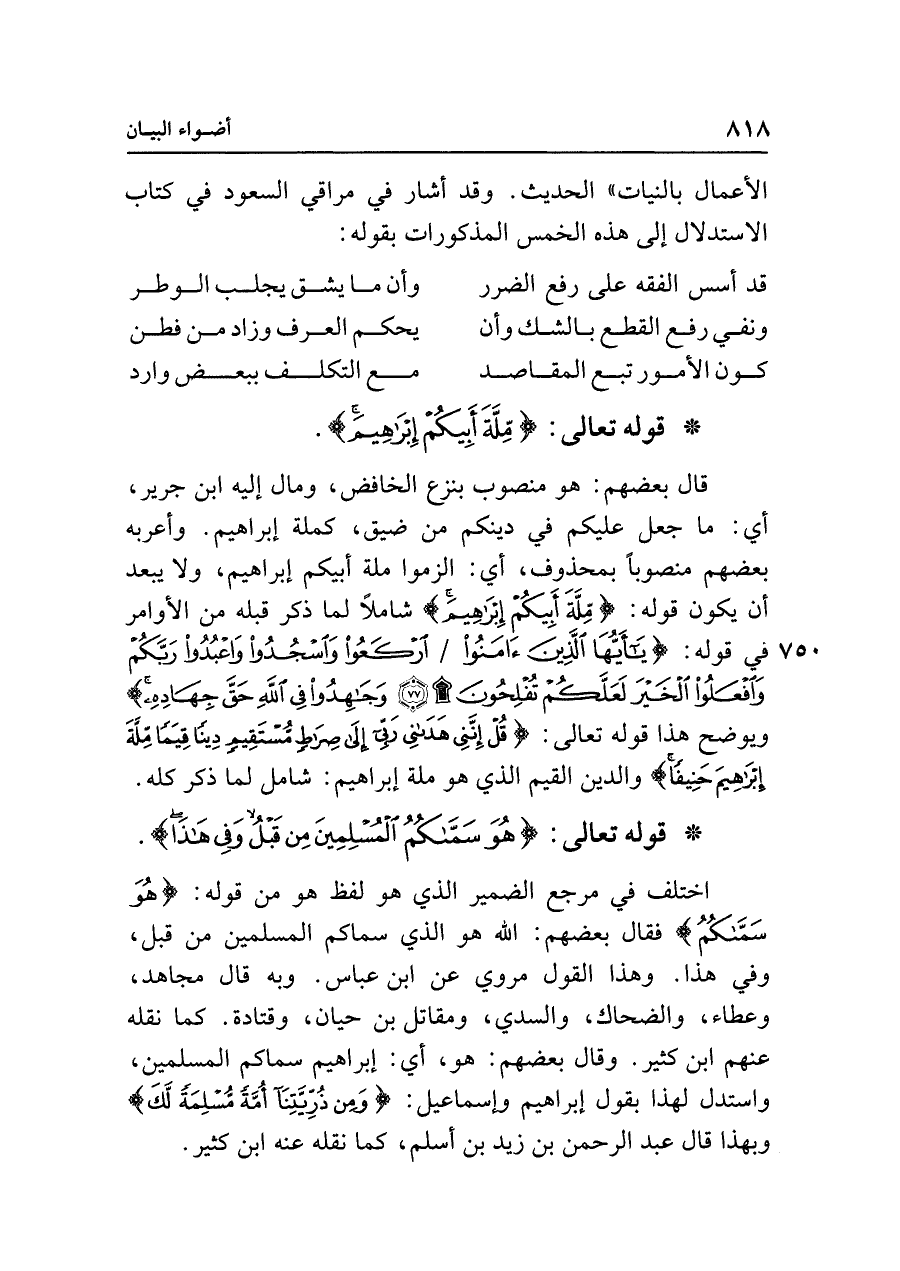 ٨١٨ أضواء البيان
الأعمال بالنيات» الحديث. وقد أشار في مراقي السعود في كتاب
الاستدلال إلى هذه الخمس المذكورات بقوله:
قد أسس الفقه على رفع الضرر وأن ما يشق يجلب الوطر
ونفي رفع القطع بالشك وأن يحكم العرف وزاد من فطن
كون الأمور تبع المقاصد مع التكلف ببعض وارد
* قوله تعالى: ﴿مِّلَّةَ أَبِيكُمْ إِبْرَٰهِيمَۚ﴾.
قال بعضهم: هو منصوب بنزع الخافض، ومال إليه ابن جرير،
أي: ما جعل عليكم في دينكم من ضيق، كملة إبراهيم. وأعربه
بعضهم منصوباً بمحذوف، أي: الزموا ملة أبيكم إبراهيم، ولا يبعد
أن يكون قوله: ﴿مِّلَّةَ أَبِيكُمْ إِبْرَٰهِيمَۚ﴾ شاملاً لما ذكر قبله من الأوامر
٧٥٠ في قوله: ﴿يَٰٓأَيُّهَا ٱلَّذِينَ ءَامَنُوا۟ / ٱرْكَعُوا۟ وَٱسْجُدُوا۟ وَٱعْبُدُوا۟ رَبَّكُمْ
وَٱفْعَلُوا۟ ٱلْخَيْرَ لَعَلَّكُمْ تُفْلِحُونَ ۩ ﴿٧٧﴾ وَجَٰهِدُوا۟ فِى ٱللَّهِ حَقَّ جِهَادِهِۦۚ﴾
ويوضح هذا قوله تعالى: ﴿قُلْ إِنَّنِى هَدَىٰنِى رَبِّىٓ إِلَىٰ صِرَٰطٍ مُّسْتَقِيمٍ دِينًا قِيَمًا مِّلَّةَ
إِبْرَٰهِيمَ حَنِيفًاۚ﴾ والدين القيم الذي هو ملة إبراهيم: شامل لما ذكر كله.
* قوله تعالى: ﴿هُوَ سَمَّىٰكُمُ ٱلْمُسْلِمِينَ مِن قَبْلُ وَفِى هَٰذَا﴾.
اختلف في مرجع الضمير الذي هو لفظ هو من قوله: ﴿هُوَ
سَمَّىٰكُمُ﴾ فقال بعضهم: الله هو الذي سماكم المسلمين من قبل،
وفي هذا. وهذا القول مروي عن ابن عباس. وبه قال مجاهد،
وعطاء، والضحاك، والسدي، ومقاتل بن حيان، وقتادة. كما نقله
عنهم ابن كثير. وقال بعضهم: هو، أي: إبراهيم سماكم المسلمين،
واستدل لهذا بقول إبراهيم وإسماعيل: ﴿وَمِن ذُرِّيَّتِنَآ أُمَّةً مُّسْلِمَةً لَّكَ﴾
وبهذا قال عبد الرحمن بن زيد بن أسلم، كما نقله عنه ابن كثير.